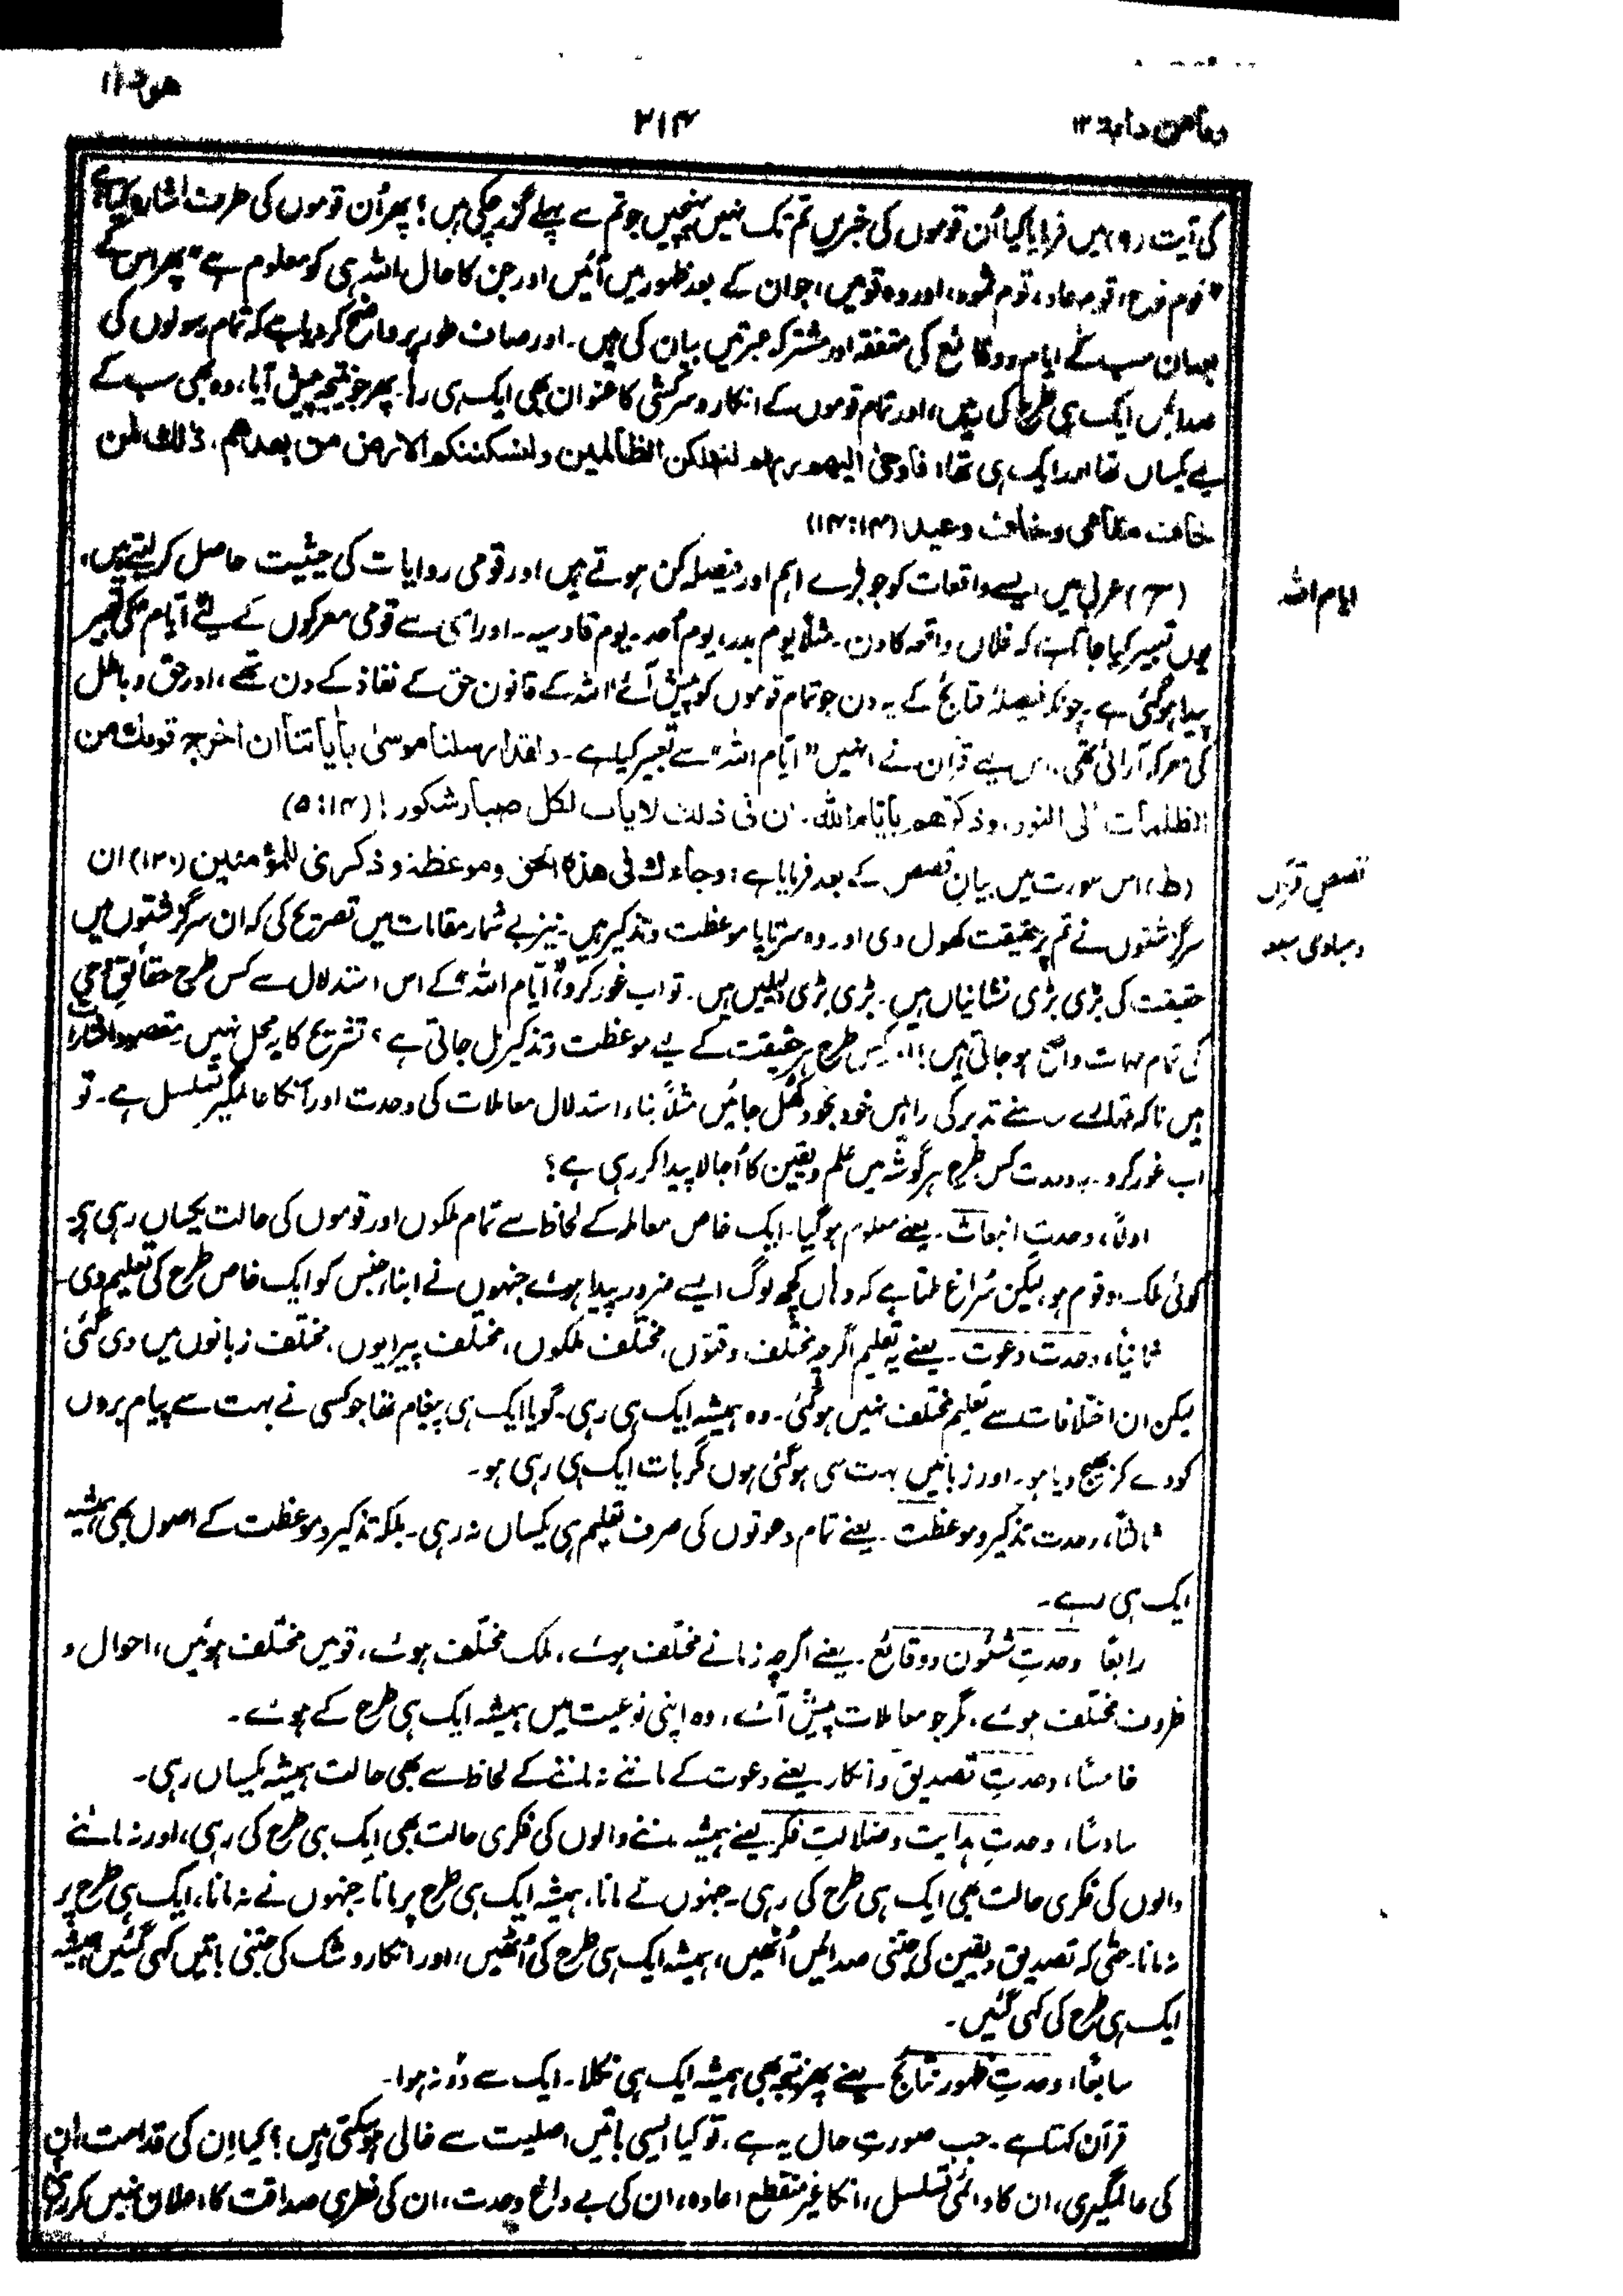 هود ۱۱
۲۱۴
ومامن دابة ۱۲
کی آیت (۹) میں فرمایا کیا اُن قوموں کی خبریں تم تک نہیں پہنچیں جو تم سے پہلے گزر چکی ہیں؟ پھر اُن قوموں کی طرف اشارہ کیا ہے
"قوم نوح، قوم عاد، قوم ثمود، اور وہ قومیں، جوان کے بعد ظہور میں آئیں اور جن کا حال اللہ ہی کو معلوم ہے" پھر اس کے
بعد ان سب کے ایام ووقائع کی متفقہ اور مشترکہ عبرتیں بیان کی ہیں۔ اور صاف طور پر واضح کر دیا ہے کہ تمام رسولوں کی
صدائیں ایک ہی طرح کی رہیں، اور تمام قوموں کے انکار و سرکشی کا عنوان بھی ایک ہی رہا۔ پھر جو نتیجہ پیش آیا، وہ بھی سب کے
لیے یکساں تھا اور ایک ہی تھا: فاوحیٰ الیھم ربھم لنھلکن الظالمین ولنسکننکم الارض من بعدھم، ذٰلك لمن
خاف مقامی وخاف وعید (۱۴:۱۴)
ایام اللہ
() عربی میں ایسے واقعات کو جو بڑے اہم اور فیصلہ کن ہوتے ہیں اور قومی روایات کی حیثیت حاصل کر لیتے ہیں،
یوں تعبیر کیا جاتا ہے، کہ فلاں واقعہ کا دن۔ مثلاً یوم بدر، یوم اُحد۔ یوم قادسیہ۔ اور اسی سے قومی معرکوں کے لئے ایام کی تعبیر
پیدا ہوگئی ہے۔ چونکہ فیصلۂ نتائج کے یہ دن جو تمام قوموں کو پیش آئے، اللہ کے قانون حق کے نفاذ کے دن تھے، اور حق و باطل
کی معرکہ آرائی تھی۔ اس لیے قرآن نے انہیں "ایّام اللہ" سے تعبیر کیا ہے۔ ولقد ارسلنا موسیٰ بأیاتنا ان اخرج قومك من
الظلمات الی النور، وذکرھم بأیام اللہ۔ ان فی ذلك لایات لکل صبار شکور! (۵:۱۴)
قصص قرآن
(ط) اس سورت میں بیانِ قصص کے بعد فرمایا ہے: وجاءك فی ھذہ الحق وموعظة وذکریٰ للمؤمنین (۱۲۰) ان
سرگزشتوں نے تم پر حقیقت کھول دی اور وہ سرتاپا موعظت و تذکیر ہیں۔ نیز بے شمار مقامات میں تصریح کی کہ ان سرگزشتوں میں
ومبادی
حقیقت کی بڑی بڑی نشانیاں ہیں۔ بڑی بڑی دلیلیں ہیں۔ تو اب غور کرو، "ایّام اللہ" کے اس استدلال سے کس طرح حقائقِ وحی
کی تمام مہمات واضح ہو جاتی ہیں؟ اور کس طرح ہر حقیقت کے لیے موعظت و تذکیر مل جاتی ہے؟ تشریح کا یہ محل نہیں مقصود اشارات
ہیں تاکہ تمہارے سامنے تدبر کی راہیں خود بخود کھل جائیں مثلاً بناء استدلال معاملات کی وحدت اور انکا عالمگیر تسلسل ہے۔ تو
اب غور کرو۔ یہ وحدت کس طرح ہر گوشہ میں علم و یقین کا اُجالا پیدا کر رہی ہے؟
اولاً، وحدتِ انبعاث۔ یعنے معلوم ہوگیا۔ ایک خاص معاملہ کے لحاظ سے تمام ملکوں اور قوموں کی حالت یکساں رہی ہے۔
کوئی ملک و قوم ہو، لیکن سُراغ ملتا ہے کہ وہاں کچھ لوگ ایسے ضرور پیدا ہوئے جنہوں نے ابناء جنس کو ایک خاص طرح کی تعلیم دی۔
ثانیاً، وحدت دعوت۔ یعنے یہ تعلیم اگرچہ مختلف وقتوں، مختلف ملکوں، مختلف پیرایوں، مختلف زبانوں میں دی گئی،
لیکن ان اختلافات سے تعلیم مختلف نہیں ہوگئی۔ وہ ہمیشہ ایک ہی رہی۔ گویا ایک ہی پیغام تھا جو کسی نے بہت سے پیام بروں
کو دے کر بھیج دیا ہو۔ اور زبانیں بہت سی ہوگئی ہوں مگر بات ایک ہی رہی ہو۔
ثالثاً، وحدت تذکیر و موعظت۔ یعنے تمام دعوتوں کی صرف تعلیم ہی یکساں نہ رہی۔ بلکہ تذکیر و موعظت کے اصول بھی ہمیشہ
ایک ہی رہے۔
رابعاً وحدتِ شئون ووقائع۔ یعنے اگرچہ زمانے مختلف ہوئے، ملک مختلف ہوئے، قومیں مختلف ہوئیں، احوال و
ظروف مختلف ہوئے، مگر جو معاملات پیش آئے، وہ اپنی نوعیت میں ہمیشہ ایک ہی طرح کے ہوئے۔
خامساً، وحدتِ تصدیق و انکار۔ یعنے دعوت کے ماننے نہ ماننے کے لحاظ سے بھی حالت ہمیشہ یکساں رہی۔
سادساً، وحدتِ ہدایت و ضلالتِ فکر۔ یعنے ہمیشہ ماننے والوں کی فکری حالت بھی ایک ہی طرح کی رہی، اور نہ ماننے
والوں کی فکری حالت بھی ایک ہی طرح کی رہی۔ جنہوں نے مانا، ہمیشہ ایک ہی طرح پر مانا۔ جنہوں نے نہ مانا، ایک ہی طرح پر
نہ مانا۔ حتّٰی کہ تصدیق و یقین کی جتنی صدائیں اُٹھیں، ہمیشہ ایک ہی طرح کی اُٹھیں، اور انکار و شک کی جتنی باتیں کہی گئیں ہمیشہ
ایک ہی طرح کی کہی گئیں۔
سابعاً، وحدتِ ظہورِ نتائج یعنے پھر نتیجہ بھی ہمیشہ ایک ہی نکلا۔ ایک سے دو نہ ہوا۔
قرآن کہتا ہے۔ جب صورت حال یہ ہے، تو کیا ایسی باتیں اصلیت سے خالی ہو سکتی ہیں؟ کیا اِن کی قدامت، ان
کی عالمگیری، ان کا دائمی تسلسل، انکا غیر منقطع اعادہ، ان کی بے داغ وحدت، ان کی فطری صداقت کا اعلان نہیں کر رہی